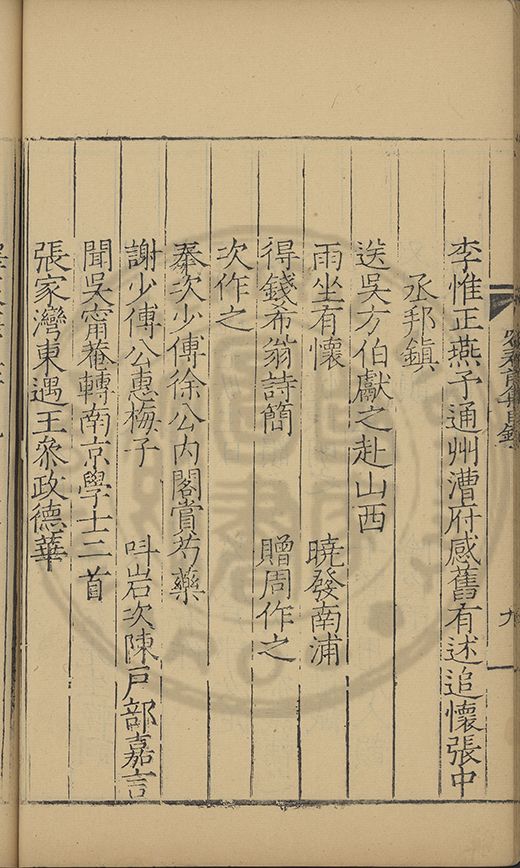 李惟正燕予通州漕府感舊有述追懷張中
丞邦鎮
送吳方伯獻之赴山西
雨坐有懷 曉發南浦
得錢希翁詩簡 贈周作之
次作之
奉次少傅徐公內閣賞芍藥
謝少傅公惠梅子 呌岩次陳戶部嘉言
聞吳甯菴轉南京學士三首
張家灣東遇王叅政德華
目錄
九